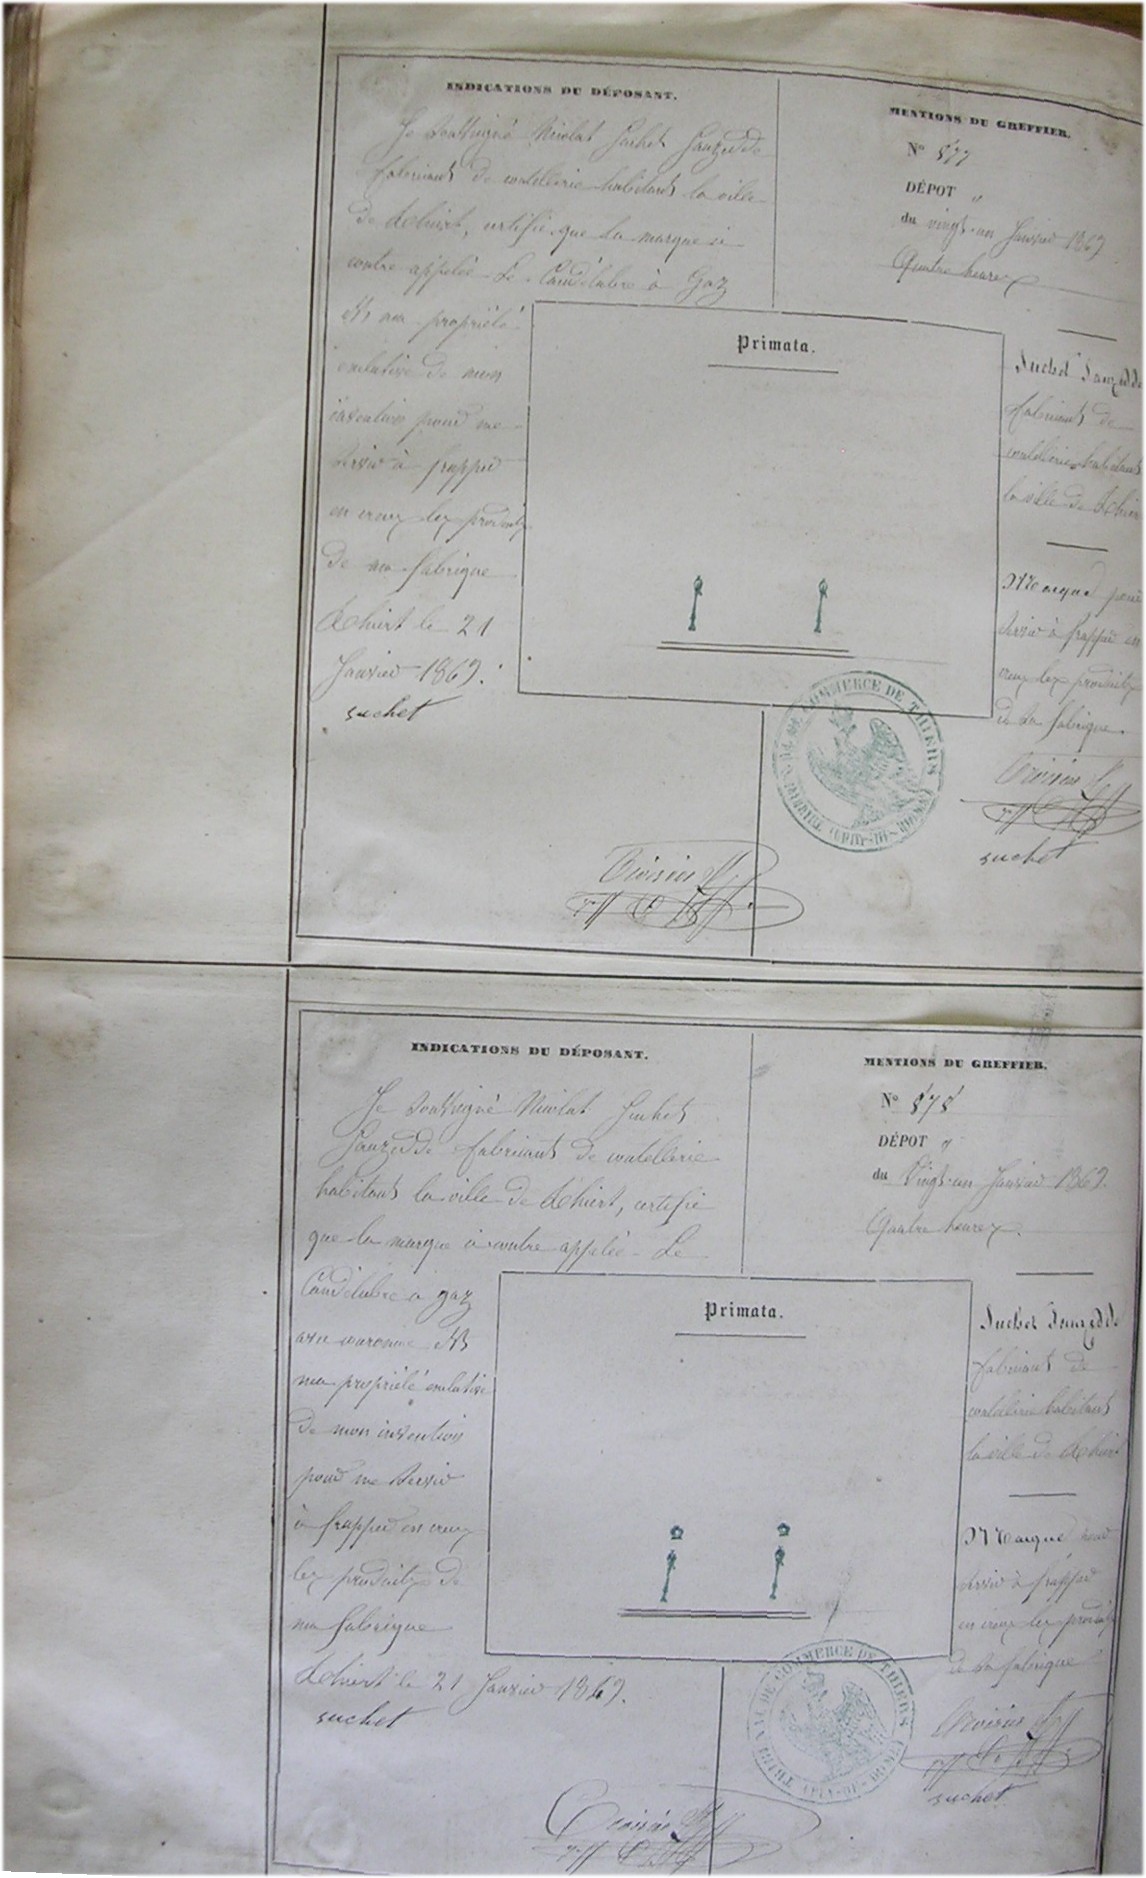 INDICATIONS DU DÉPOSANT.
Je soussigné Nicolas Suchet Sauzedde
fabricant de coutellerie habitant la ville
de Thiers, certifie que la marque ci
contre appelée Le Candélabre à Gaz
est ma propriété
exclusive de mon
invention pour me
servir à frapper
en creux les produits
de ma fabrique
Thiers le 21
Janvier 1869.
suchet
MENTIONS DU GREFFIER.
N° 577
DÉPOT "
du vingt-un Janvier 1869
Quatre heures
Primata.
Suchet Sauzedde
fabricant de
coutellerie habitant
la ville de Thiers
Marque pour
servir à frapper en
creux les produits
de sa fabrique.
suchet
TRIBUNAL DE COMMERCE DE THIERS (PUY-DE-DOME)
INDICATIONS DU DÉPOSANT.
Je soussigné Nicolas Suchet
Sauzedde fabricant de coutellerie
habitant la ville de Thiers, certifie
que la marque ci contre appelée Le
Candélabre à gaz
avec couronne est
ma propriété exclusive
de mon invention
pour me servir
à frapper en creux
les produits de
ma fabrique
Thiers le 21 Janvier 1869.
suchet
MENTIONS DU GREFFIER.
N° 578
DÉPOT "
du Vingt-un Janvier 1869.
Quatre heures.
Primata.
Suchet Sauzedde
fabricant de
coutellerie habitant
la ville de Thiers
Marque pour
servir à frapper
en creux les produits
de sa fabrique
suchet
TRIBUNAL DE COMMERCE DE THIERS (PUY-DE-DOME)